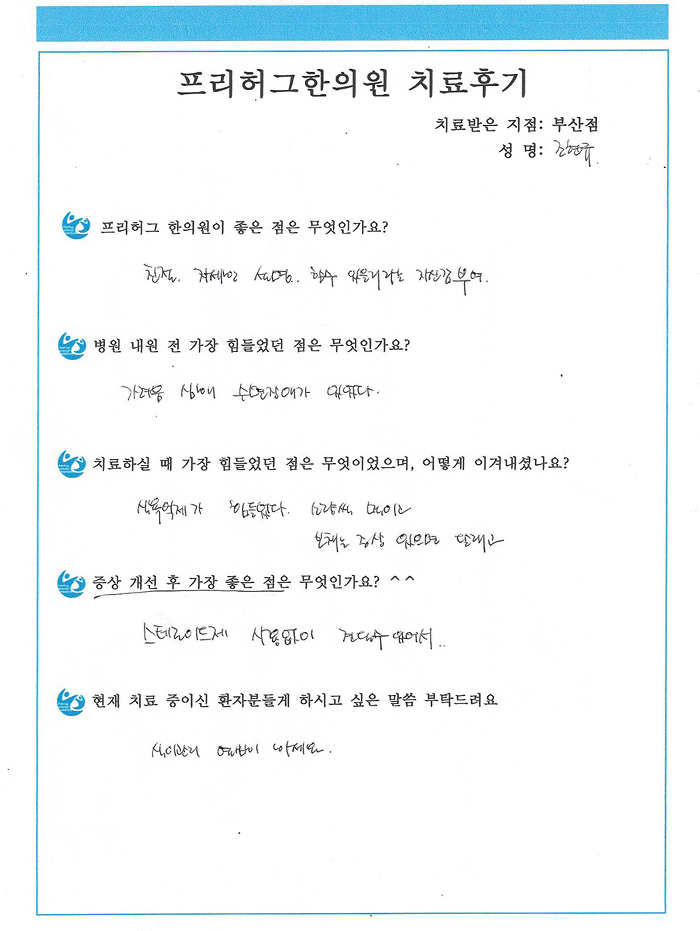 프리허그한의원 치료후기
치료받은 지점: 부산점
성 명: 조현규
프리허그 한의원이 좋은 점은 무엇인가요?
친절. 자세한 설명. 할수 있을거라는 자신감부여.
병원 내원 전 가장 힘들었던 점은 무엇인가요?
가려움 심해 수면장애가 있었다.
치료하실 때 가장 힘들었던 점은 무엇이었으며, 어떻게 이겨내셨나요?
식욕억제가 힘들었다. 소량씩 먹이고
보채는 증상 있으면 달래고
증상 개선 후 가장 좋은 점은 무엇인가요? ^^
스테로이드제 사용없이 견딜수 있어서..
현재 치료 중이신 환자분들게 하시고 싶은 말씀 부탁드려요
식이관리 열심히 하세요.